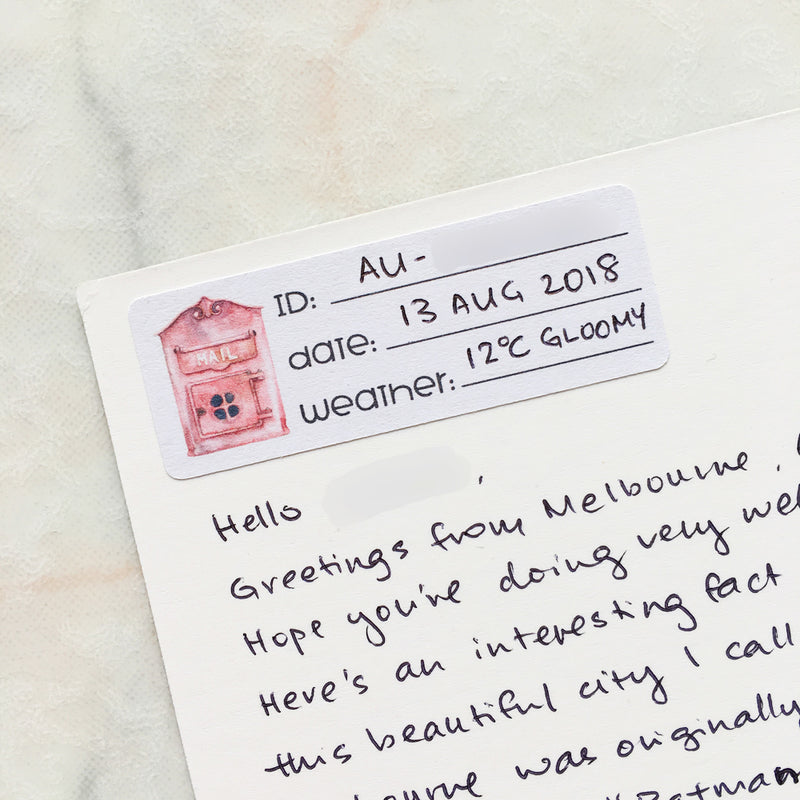 MAIL
ID: AU-
date: 13 AUG 2018
weather: 12°C GLOOMY
Hello ,
Greetings from Melbourne.
Hope you're doing very
Here's an interesting fact
this beautiful city I call
was originally
"Batman